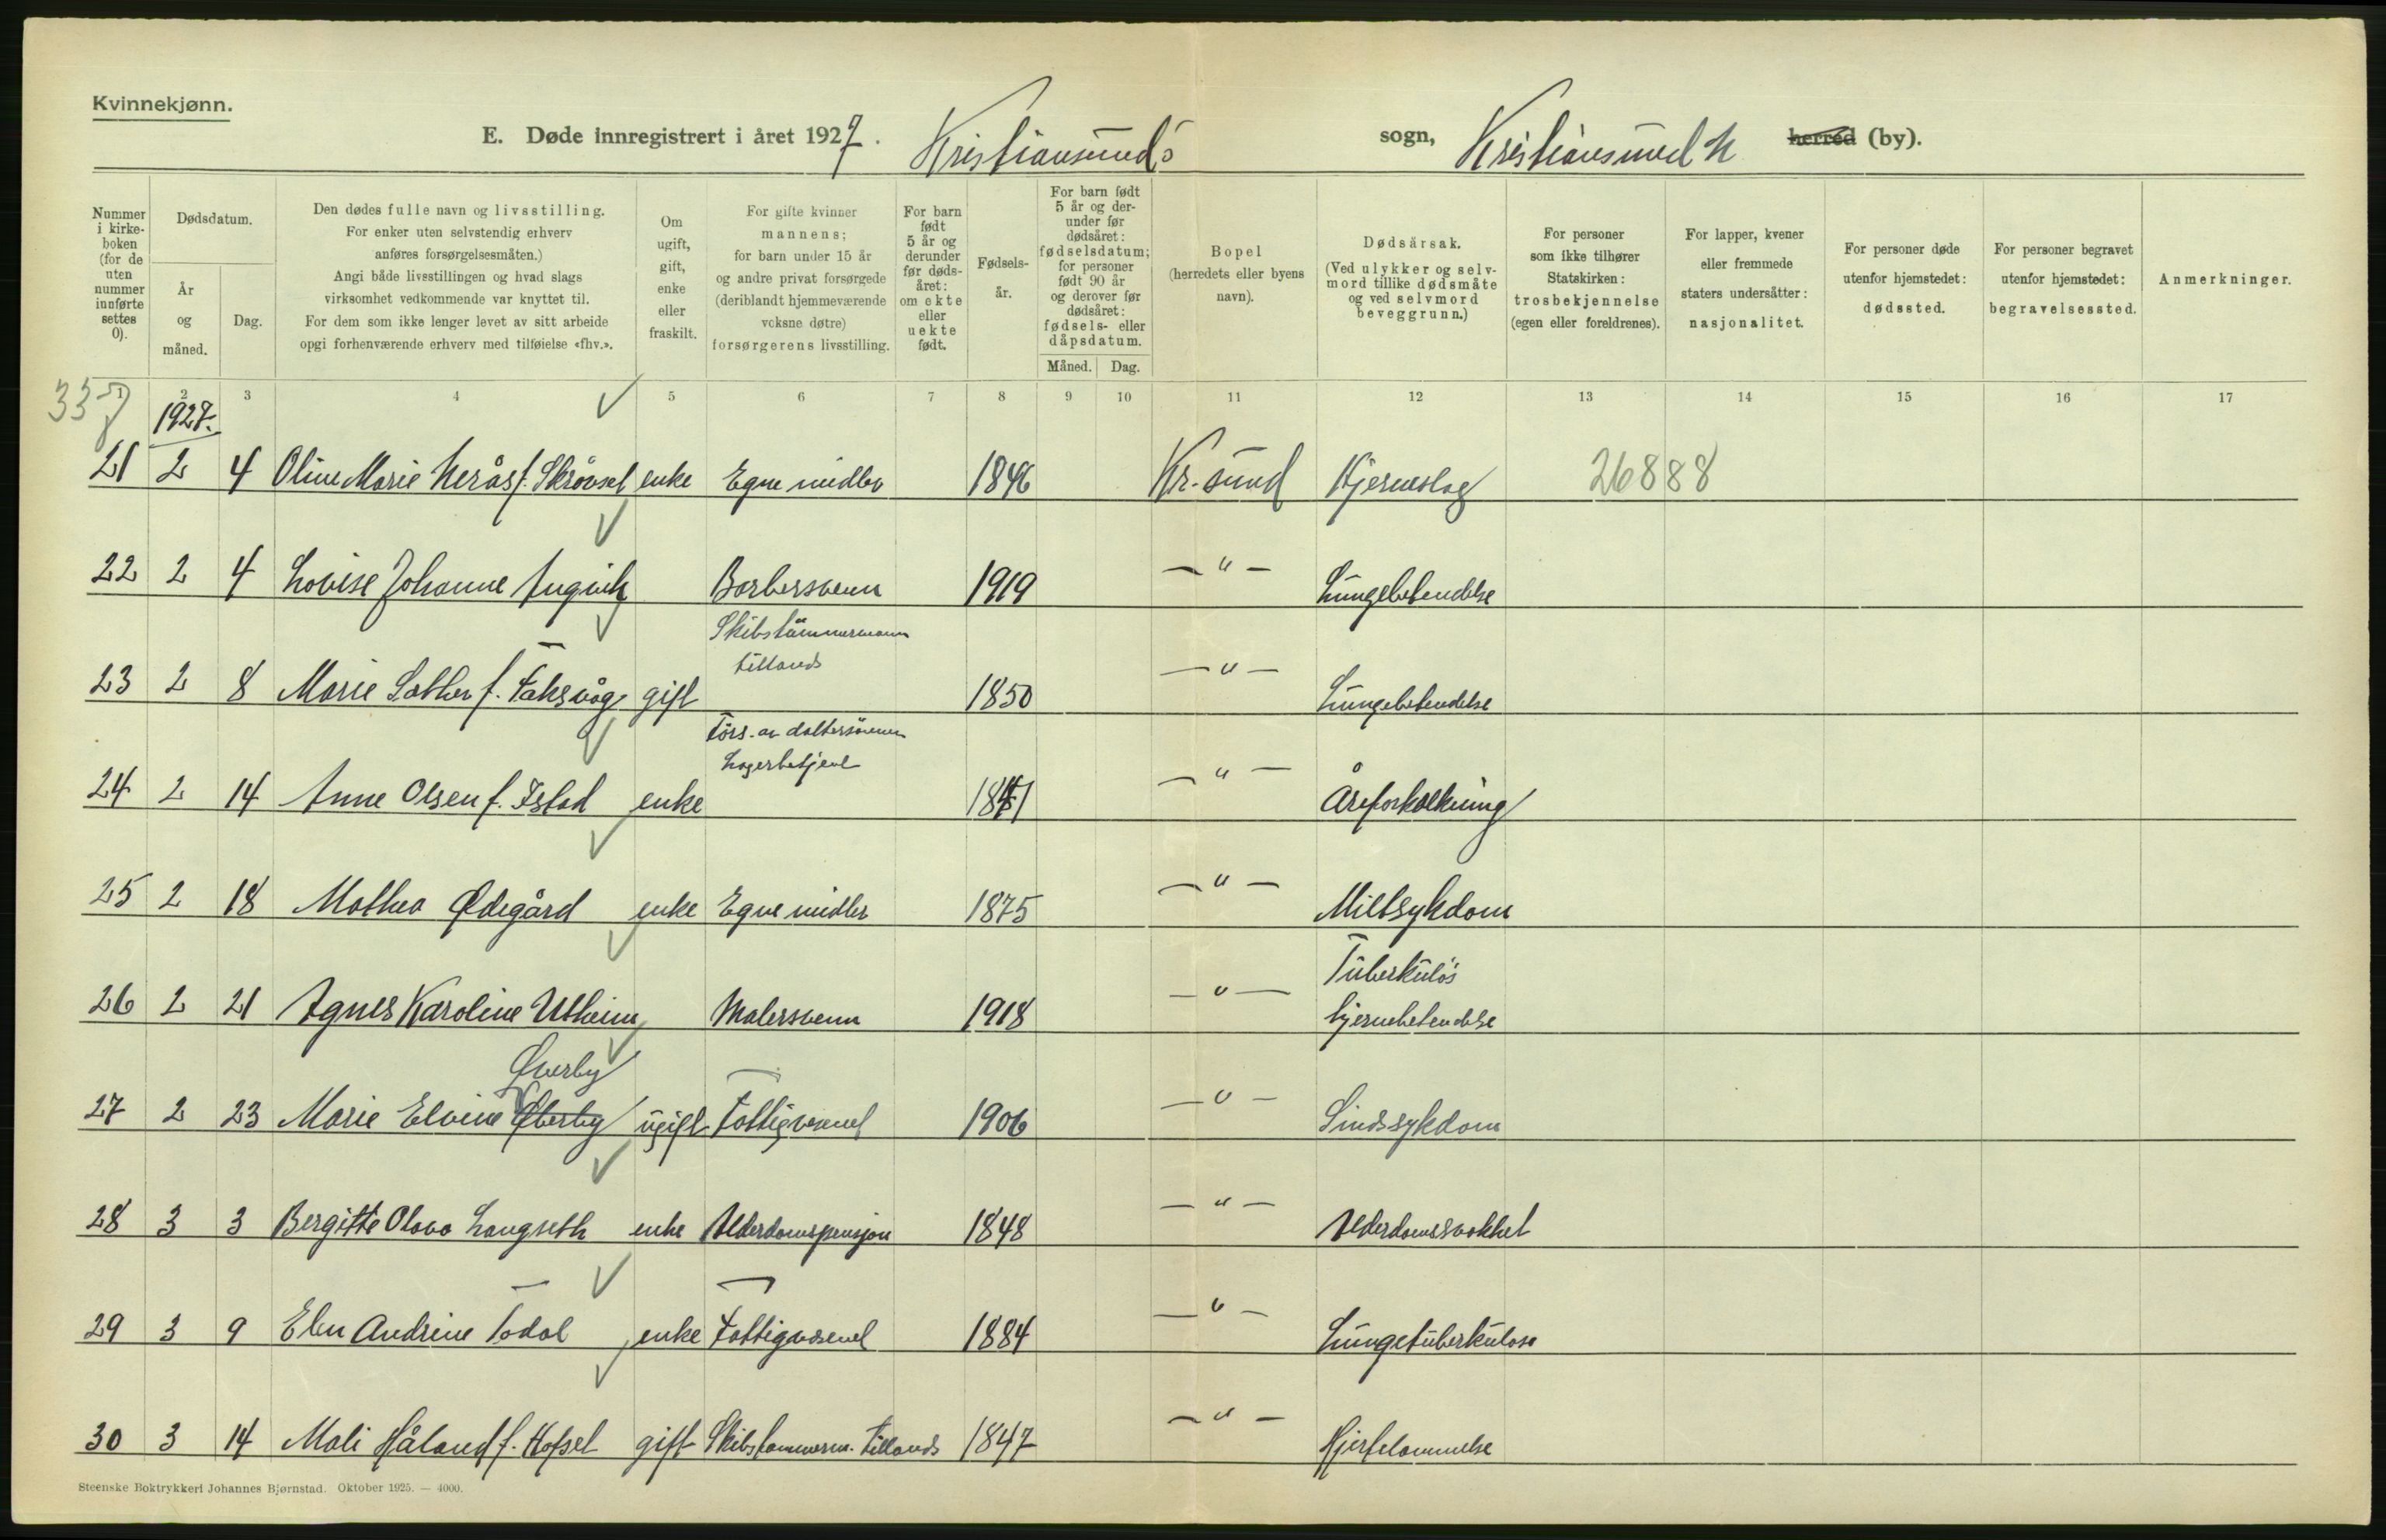 Kvinnekjønn.
E. Døde innregistrert i året 1927. Kristiansunds sogn, Kristiansund N herred (by).
Nummer i kirkeboken (for de uten nummer innførte settes 0).
Dødsdatum.
År og måned.
Dag.
Den dødes fulle navn og livsstilling.
For enker uten selvstendig erhverv
anføres forsørgelsesmåten.)
Angi både livsstillingen og hvad slags
virksomhet vedkommende var knyttet til.
For dem som ikke lenger levet av sitt arbeide
opgi forhenværende erhverv med tilføielse «fhv.».
Om ugift, gift, enke eller fraskilt.
For gifte kvinner
mannens;
for barn under 15 år
og andre privat forsørgede
(deriblandt hjemmeværende
voksne døtre)
forsørgerens livsstilling.
For barn født 5 år og derunder før dødsåret: om ekte eller uekte født.
Fødselsår.
For barn født 5 år og derunder før dødsåret: fødselsdatum; for personer født 90 år og derover før dødsåret: fødsels- eller dåpsdatum.
Måned. Dag.
Bopel
(herredets eller byens
navn).
Dødsårsak.
(Ved ulykker og selvmord tillike dødsmåte og ved selvmord beveggrunn.)
For personer
som ikke tilhører
Statskirken:
trosbekjennelse
(egen eller foreldrenes).
For lapper, kvener
eller fremmede
staters undersåtter:
nasjonalitet.
For personer døde
utenfor hjemstedet:
dødssted.
For personer begravet
utenfor hjemstedet:
begravelsessted.
Anmerkninger.
1 2 3 4 5 6 7 8 9 10 11 12 13 14 15 16 17
337
1927.
21 2 4 Oline Marie Nerås f. Skrøvset enke Egne midler 1846 Kr.sund Hjerneslag 26888
22 2 4 Lovise Johanne Angvik Barbersvenn 1919 -"- Lungebetendelse
Skibstømmermann
tillands
23 2 8 Marie Sæther f. Faksvåg gift 1850 -"- Lungebetendelse
Fors. av dattersønnen
Lagerbetjent
24 2 14 Anne Olsen f. Istad enke 1841 -"- Åreforkalkning
25 2 18 Mathea Ødegård enke Egne midler 1875 -"- Miltsykdom
Tuberkuløs
26 2 21 Agnes Karoline Utheim Malersvenn 1918 -"- hjernebetendelse
Øverby
27 2 23 Marie Elvine Øterby ugift Fattigvesenet 1906 -"- Sindssykdom
28 3 3 Bergitte Olava Langseth enke Alderdomspensjon 1848 -"- Alderdomssvakhet
29 3 9 Elen Andrine Todal enke Fattigvesenet 1884 -"- Lungetuberkulose
30 3 14 Mali Håland f. Hofset gift Skibstømmerm. tillands 1847 -"- Hjertelammelse
Steenske Boktrykkeri Johannes Bjørnstad. Oktober 1925. — 4000.